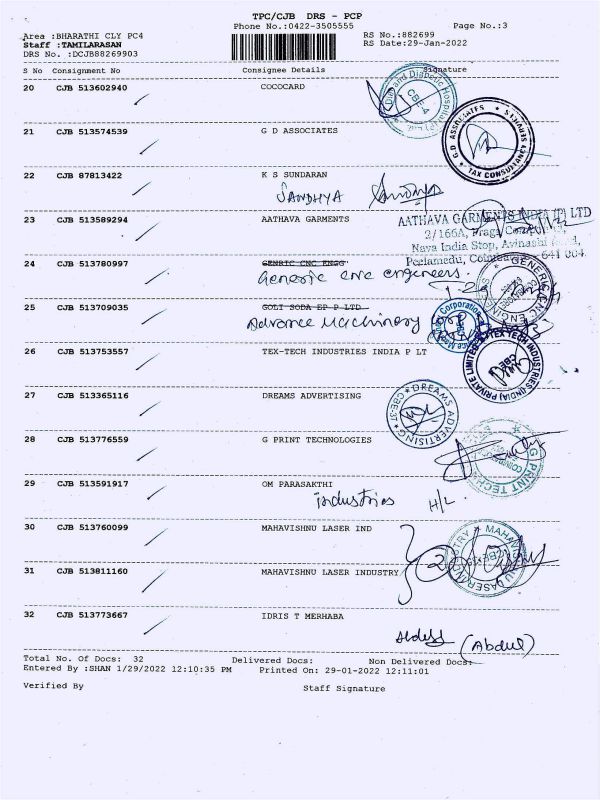 TPC/CJB DRS - PCP
Phone No.:0422-3505555 Page No.:3
Area :BHARATHI CLY PC4 RS No.:882699
Staff :TAMILARASAN RS Date:29-Jan-2022
DRS No. :DCJB88269903
S No Consignment No Consignee Details Signature
20 CJB 513602940 COCOCARD
and Diabetic Hospital CBE-4
21 CJB 513574539 G D ASSOCIATES
G D ASSOCIATES TAX CONSULTANCY SERVICES
22 CJB 87813422 K S SUNDARAN
SANDHYA
23 CJB 513589294 AATHAVA GARMENTS
AATHAVA GARMENTS INDIA (P) LTD
2/166A,
Nava India Stop, Avinashi
Peelamedu, 641 004
24 CJB 513780997 GENRIC CNC ENGG
Generic cnc engineers.
25 CJB 513709035 GOLI SODA EP P LTD
Advance Machinery
Corporation
26 CJB 513753557 TEX-TECH INDUSTRIES INDIA P LT
TEX-TECH INDUSTRIES (INDIA) PRIVATE LIMITED CBE
27 CJB 513365116 DREAMS ADVERTISING
DREAMS ADVERTISING CBE-37
28 CJB 513776559 G PRINT TECHNOLOGIES
G PRINT TECH
29 CJB 513591917 OM PARASAKTHI
industries H/L
30 CJB 513760099 MAHAVISHNU LASER IND
31 CJB 513811160 MAHAVISHNU LASER INDUSTRY
32 CJB 513773667 IDRIS T MERHABA
(Abdul)
Total No. Of Docs: 32 Delivered Docs: Non Delivered Docs:
Entered By :SHAN 1/29/2022 12:10:35 PM Printed On: 29-01-2022 12:11:01
Verified By Staff Signature